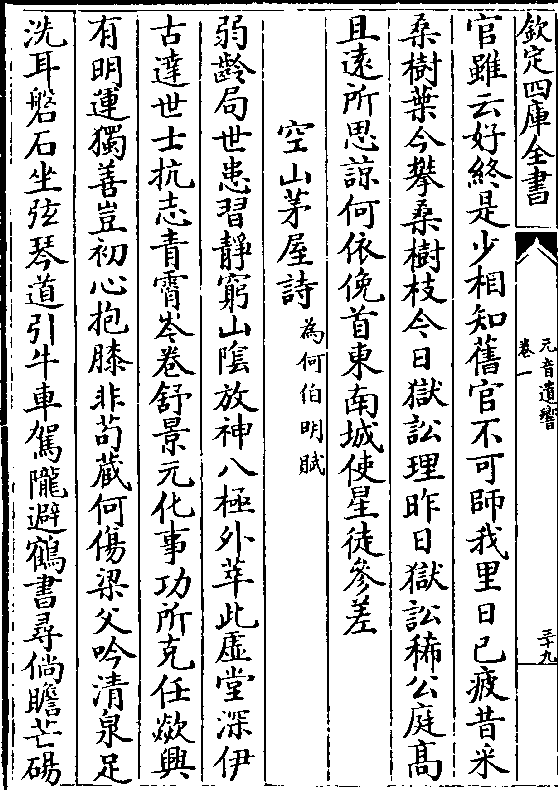 欽定四庫全書
元音遺響
卷一
三十九
官雖云好終是少相知舊官不可師我里日已疲昔采
桑樹葉今攀桑樹枝今日獄訟理昨日獄訟稀公庭髙
且遠所思諒何依俛首東南城使星徒參差
空山茅屋詩為何伯明賦
弱齡局世患習靜窮山隂放神八極外萃此虛堂深伊
古達世士抗志青霄岑卷舒景元化事功所克任歘興
有明運獨善豈初心抱膝非苟藏何傷梁父吟清泉足
洗耳磐石坐弦琴道引牛車駕隴避鶴書尋倘瞻芒碭